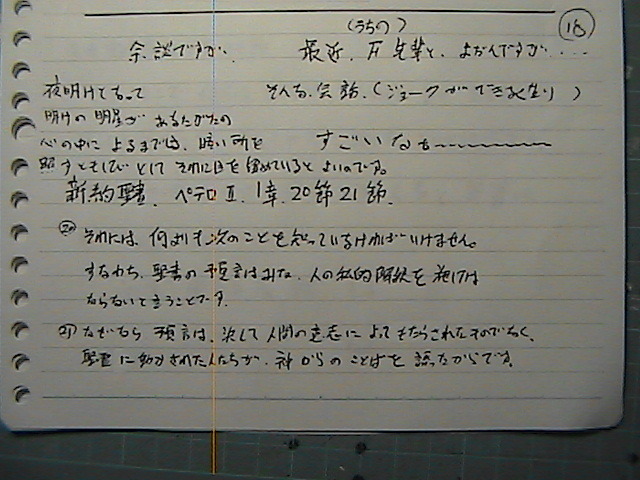 (うちの)
18
余談ですが、 最近、 先輩と、
夜明けて
そんな会話。(ジョークができ
明けの明星が あなたがたの
心の中に のぼるまでは、暗い所を
すごいなぁ〜〜〜
照らすともしびとして それに目を留めているとよいのです。
新約聖書 ペテロⅡ. 1章. 20節21節.
⑳ それには、何よりも次のことを知っていなければいけません。
すなわち、聖書の預言はみな、人の私的解釈を施しては
ならないと言うことです。
㉑ なぜなら 預言は、決して人間の意志によってもたらされたものでなく、
聖霊に動かされた人たちが、神からのことばを 語ったからです。